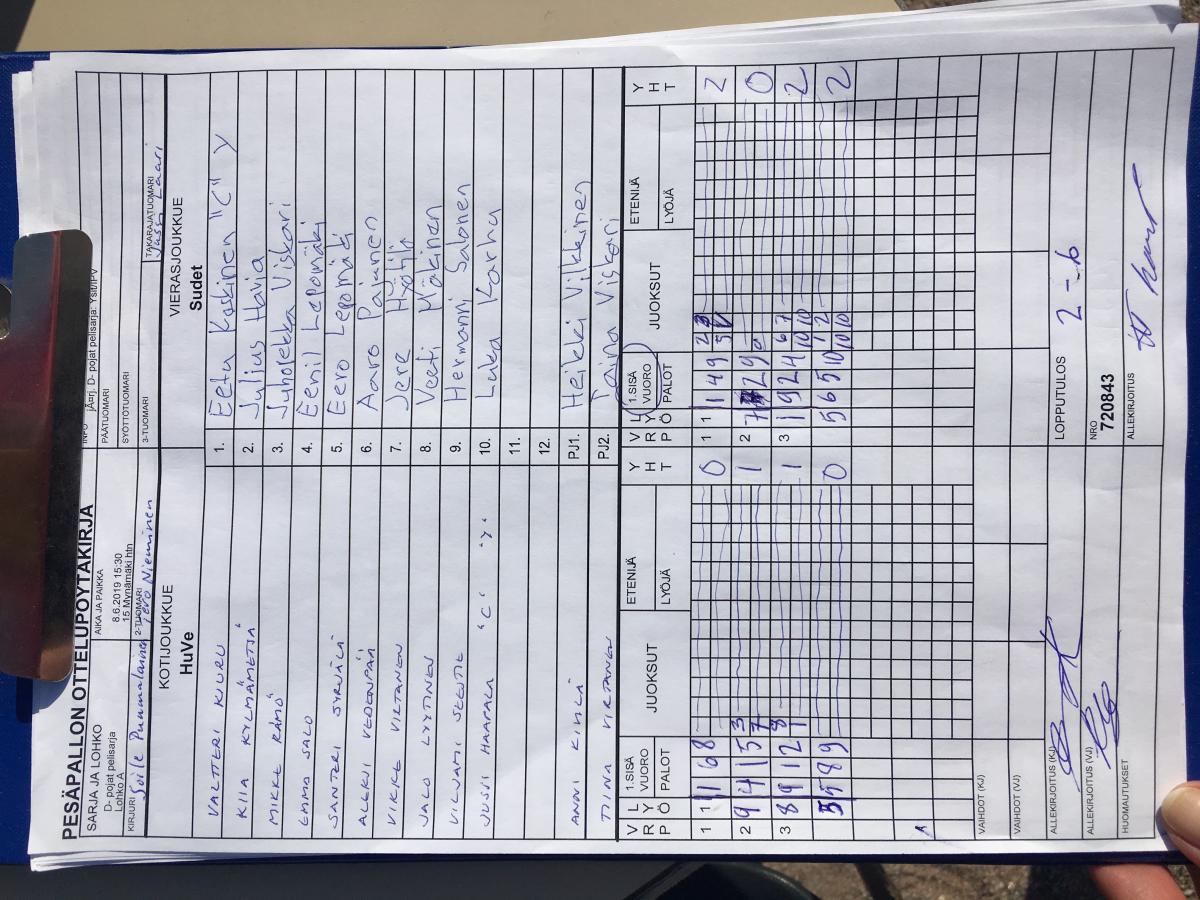 PESÄPALLON OTTELUPÖYTÄKIRJA
SARJA JA LOHKO
D- pojat pelisarja
Lohko A
AIKA JA PAIKKA
8.6.2019 15:30
15 Mynämäki htn
INFO
D- pojat pelisarja: Ysit/IPV
PÄÄTUOMARI
SYÖTTÖTUOMARI
KIRJURI
Soile Puumalainen
2-TUOMARI
Tero Nieminen
3-TUOMARI
TAKARAJATUOMARI
Jussi Laari
KOTIJOUKKUE
HuVe
VIERASJOUKKUE
Sudet
VALTTERI KUURU
1. Eetu Koskinen "C" Y
KIIA KYLMÄMETSÄ
2. Julius Havia
MIKKE RÄMÖ
3. Juhorekka Viskari
EMMA SALO
4. Eenil Lepomäki
SANTERI SYRJÄLÄ
5. Eero Lepomäki
ALEKSI VEDENPÄÄ
6. Aaro Pajunen
VIKKE VILTANEN
7. Jere Hyötilä
JALO LYYTINEN
8. Veeti Mäkinen
VILJAMI SLEUTIE
9. Hermanni Salonen
JUSSI HAAPALA "C" "Y"
10. Luka Karhu
11.
12.
ANNI KIVELÄ
PJ1. Heikki Vilkkinen
TIINA VIRTANEN
PJ2. Taina Viskari
V R P
L Y Ö
1.SISÄ VUORO
PALOT
JUOKSUT
ETENIJÄ
LYÖJÄ
Y H T
V R P
L Y Ö
1.SISÄ VUORO
PALOT
JUOKSUT
ETENIJÄ
LYÖJÄ
Y H T
1 1 1 6 8 0
1 1 1 4 9 2
2 9 4 1 5 1
2 7 2 9 0
3 8 9 12 1
3 1 9 2 4 2
5 5 8 9 0
5 6 5 10 2
VAIHDOT (KJ)
VAIHDOT (VJ)
ALLEKIRJOITUS (KJ)
LOPPUTULOS
2 - 6
ALLEKIRJOITUS (VJ)
NRO
720843
HUOMAUTUKSET
ALLEKIRJOITUS